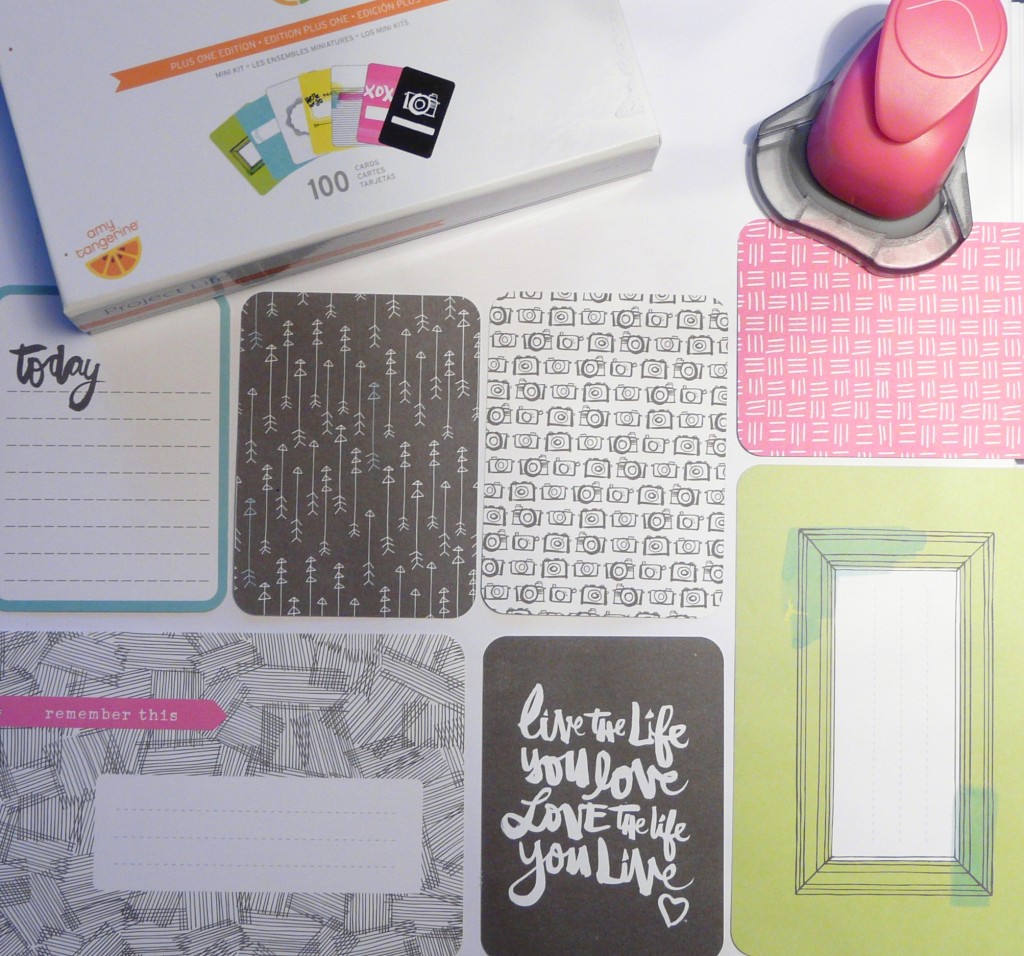 PLUS ONE EDITION • EDITION PLUS ONE • EDICIÓN PLUS
MINI KIT • LES ENSEMBLES MINIATURES • LOS MINI KITS
XOX
100
CARDS
CARTES
TARJETAS
amy
tangerine
Project Life
today
remember this
live the life
you love
Love the life
you live